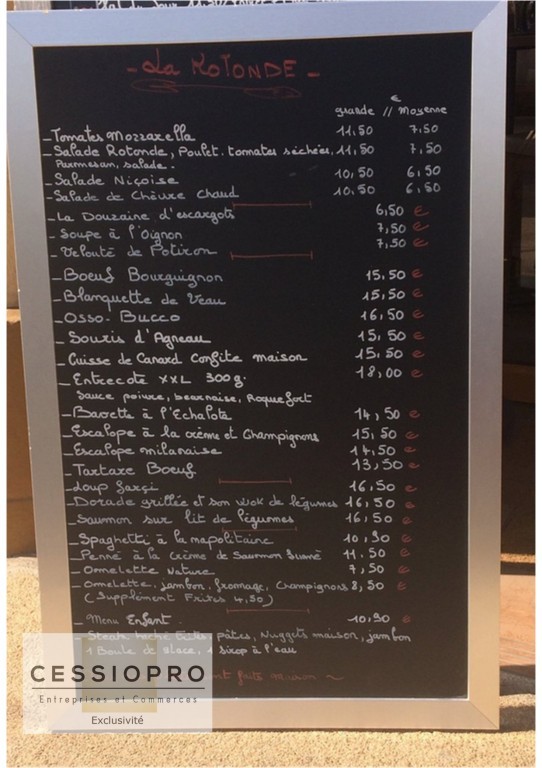 Plat du Jour 11.50
- La ROTONDE -
€
grande // Moyenne
- Tomates Mozzarella 11,50 7,50
- Salade Rotonde, Poulet. tomates séchées, 11,50 7,50
Parmesan, salade.
- Salade Niçoise 10,50 6,50
- Salade de Chèvre Chaud 10,50 6,50
- La Douzaine d'escargots 6,50 €
- Soupe à l'Oignon 7,50 €
- Velouté de Potiron 7,50 €
- Boeuf Bourguignon 15,50 €
- Blanquette de Veau 15,50 €
- Osso-Bucco 16,50 €
- Souris d'Agneau 15,50 €
- Cuisse de Canard Confite maison 15,50 €
- Entrecote XXL 300g. 18,00 €
Sauce poivre, bearnaise, Roquefort
- Bavette à l'Echalote 14,50 €
- Escalope à la crème et Champignons 15,50 €
- Escalope milanaise 14,50 €
- Tartare Boeuf 13,50 €
- Loup farçi 16,50 €
- Dorade grillée et son wok de légumes 16,50 €
- Saumon sur lit de légumes 16,50 €
- Spaghetti à la napolitaine 10,90 €
- Penne à la Crème de Saumon Fumé 11.50 €
- Omelette Nature 7,50 €
- Omelette, jambon, fromage, Champignons 8,50 €
(Supplément Frites 4,50)
- Menu Enfant. 10,90 €
- Steak haché frites, pâtes, Nuggets maison, jambon
1 Boule de Glace, 1 sirop à l'eau
maison ~
CESSIOPRO
Entreprises et Commerces
Exclusivité